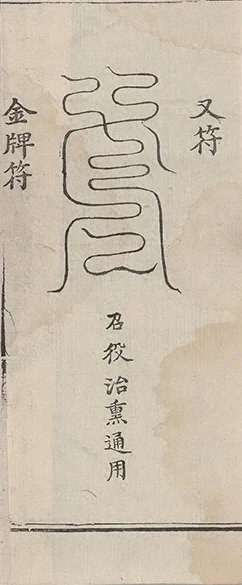 又符
召役治熏通用
金牌符